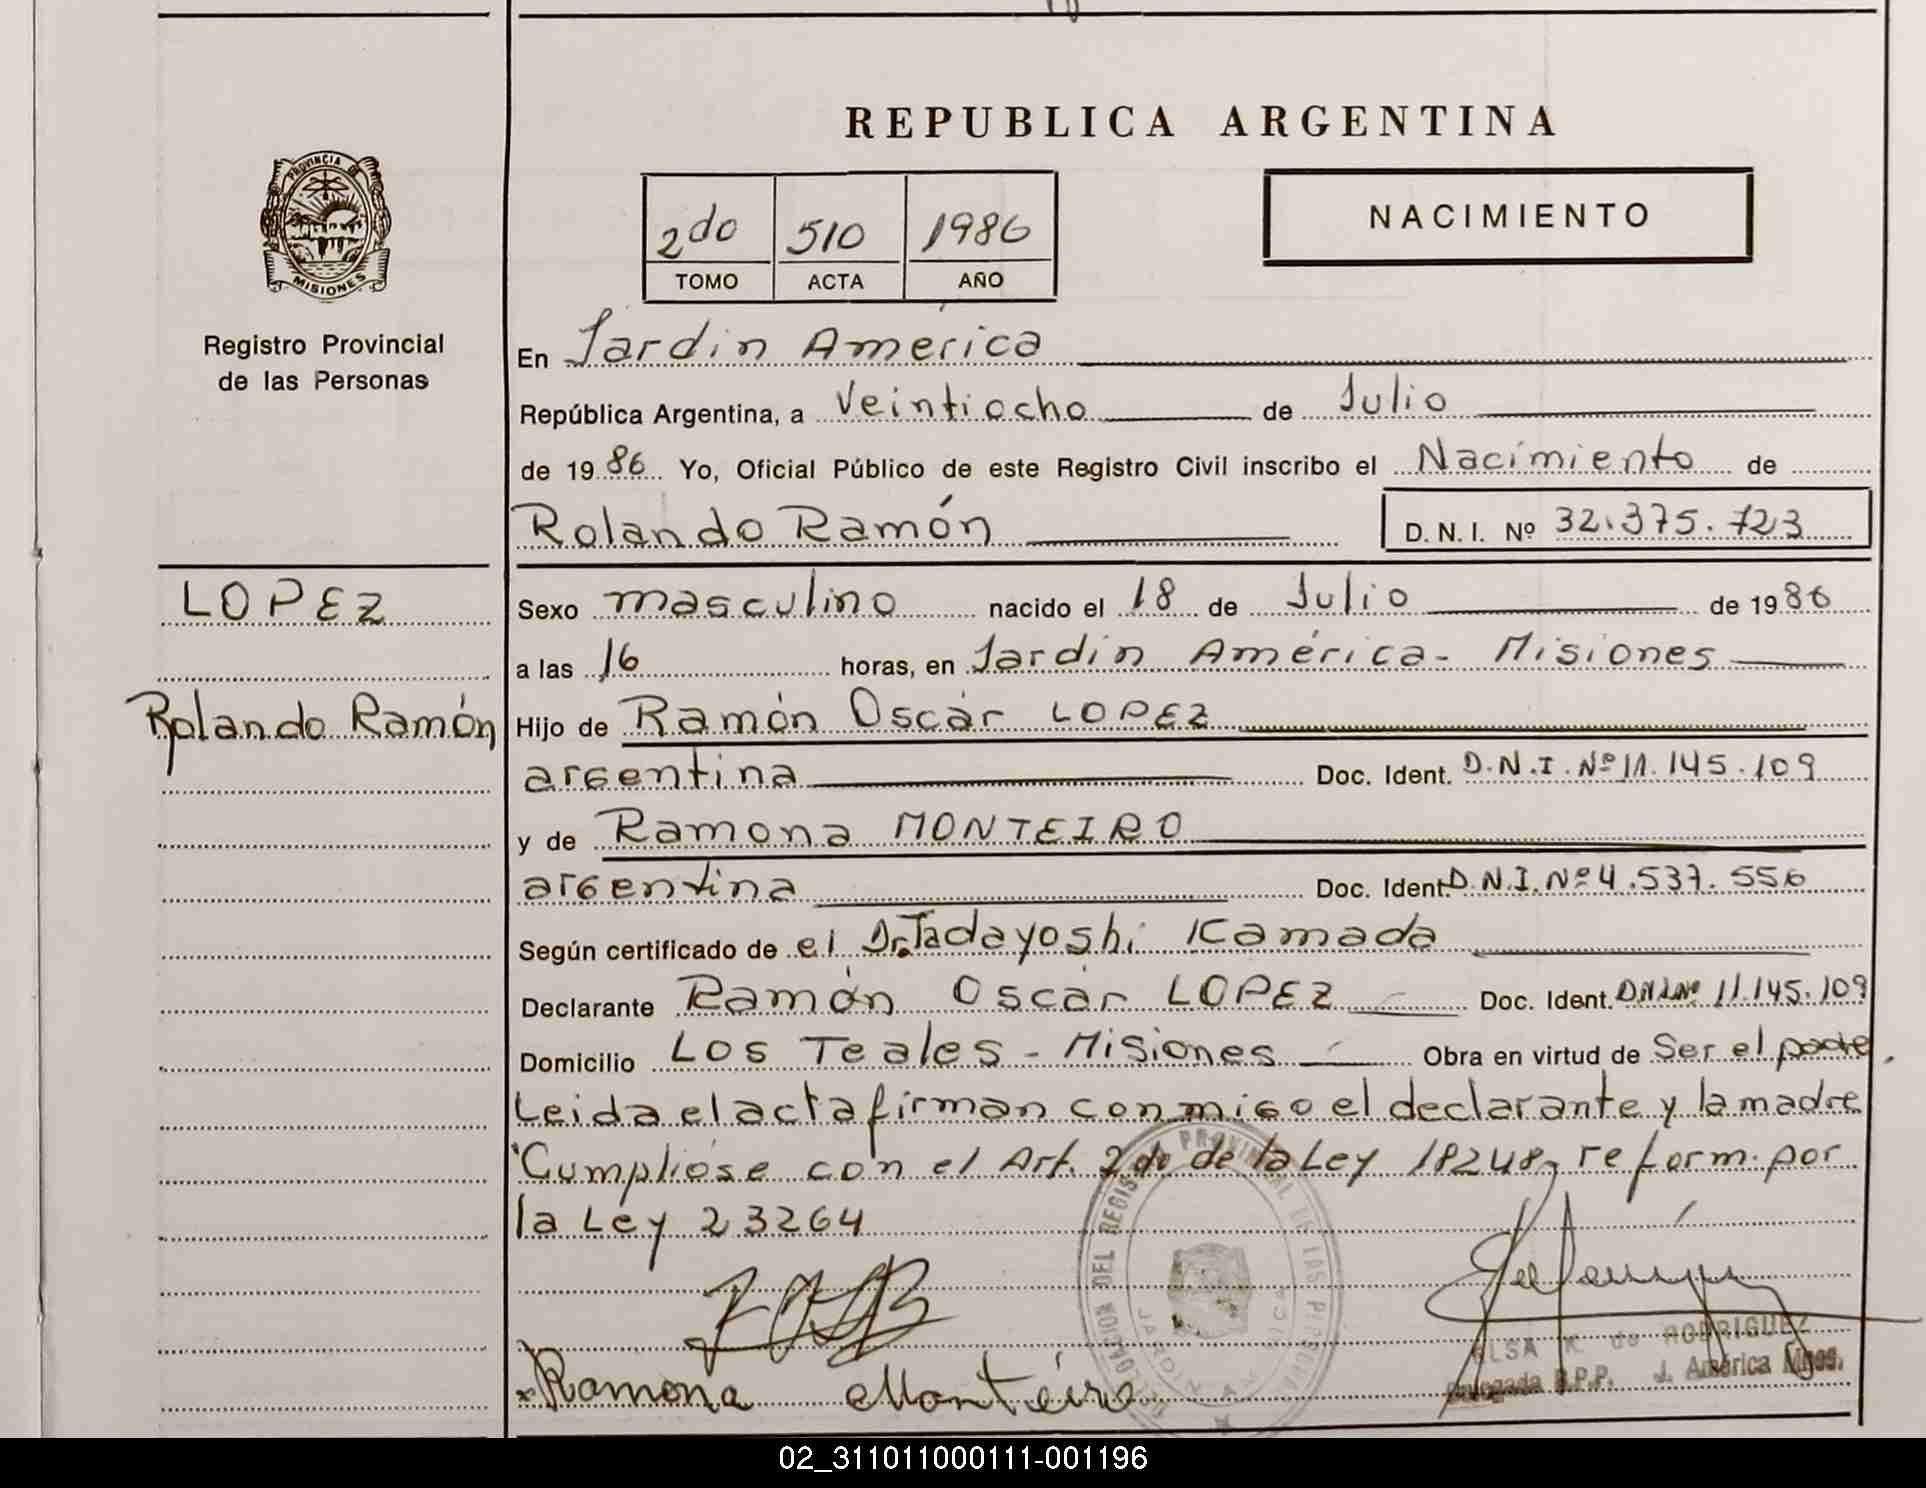 REPUBLICA ARGENTINA
PROVINCIA DE
MISIONES
Registro Provincial
de las Personas
2do 510 1986
TOMO ACTA AÑO
NACIMIENTO
En Jardin América
República Argentina, a Veintiocho de Julio
de 1986 Yo, Oficial Público de este Registro Civil inscribo el Nacimiento de
Rolando Ramón D.N.I. Nº 32.375.723
LOPEZ
Rolando Ramón
Sexo masculino nacido el 18 de Julio de 1986
a las 16 horas, en Jardin América - Misiones
Hijo de Ramón Oscar LOPEZ
argentina Doc. Ident. D.N.I. Nº 11.145.109
y de Ramona MONTEIRO
argentina Doc. Ident. D.N.I. Nº 4.537.556
Según certificado de el Dr. Tadayoshi Kamada
Declarante Ramón Oscar LOPEZ Doc. Ident. DNI Nº 11.145.109
Domicilio Los Teales - Misiones Obra en virtud de Ser el padre
Leida el acta firman conmigo el declarante y la madre
Cumpliose con el Art. 2do de la Ley 18248, reform. por
la Ley 23264
DEL REGISTRO PROVINCIAL DE LAS PERSONAS
JARDIN AMERICA
ELSA K. de RODRIGUEZ
Delegada R.P.P. J. América Mnes.
Ramona Monteiro
02_311011000111-001196